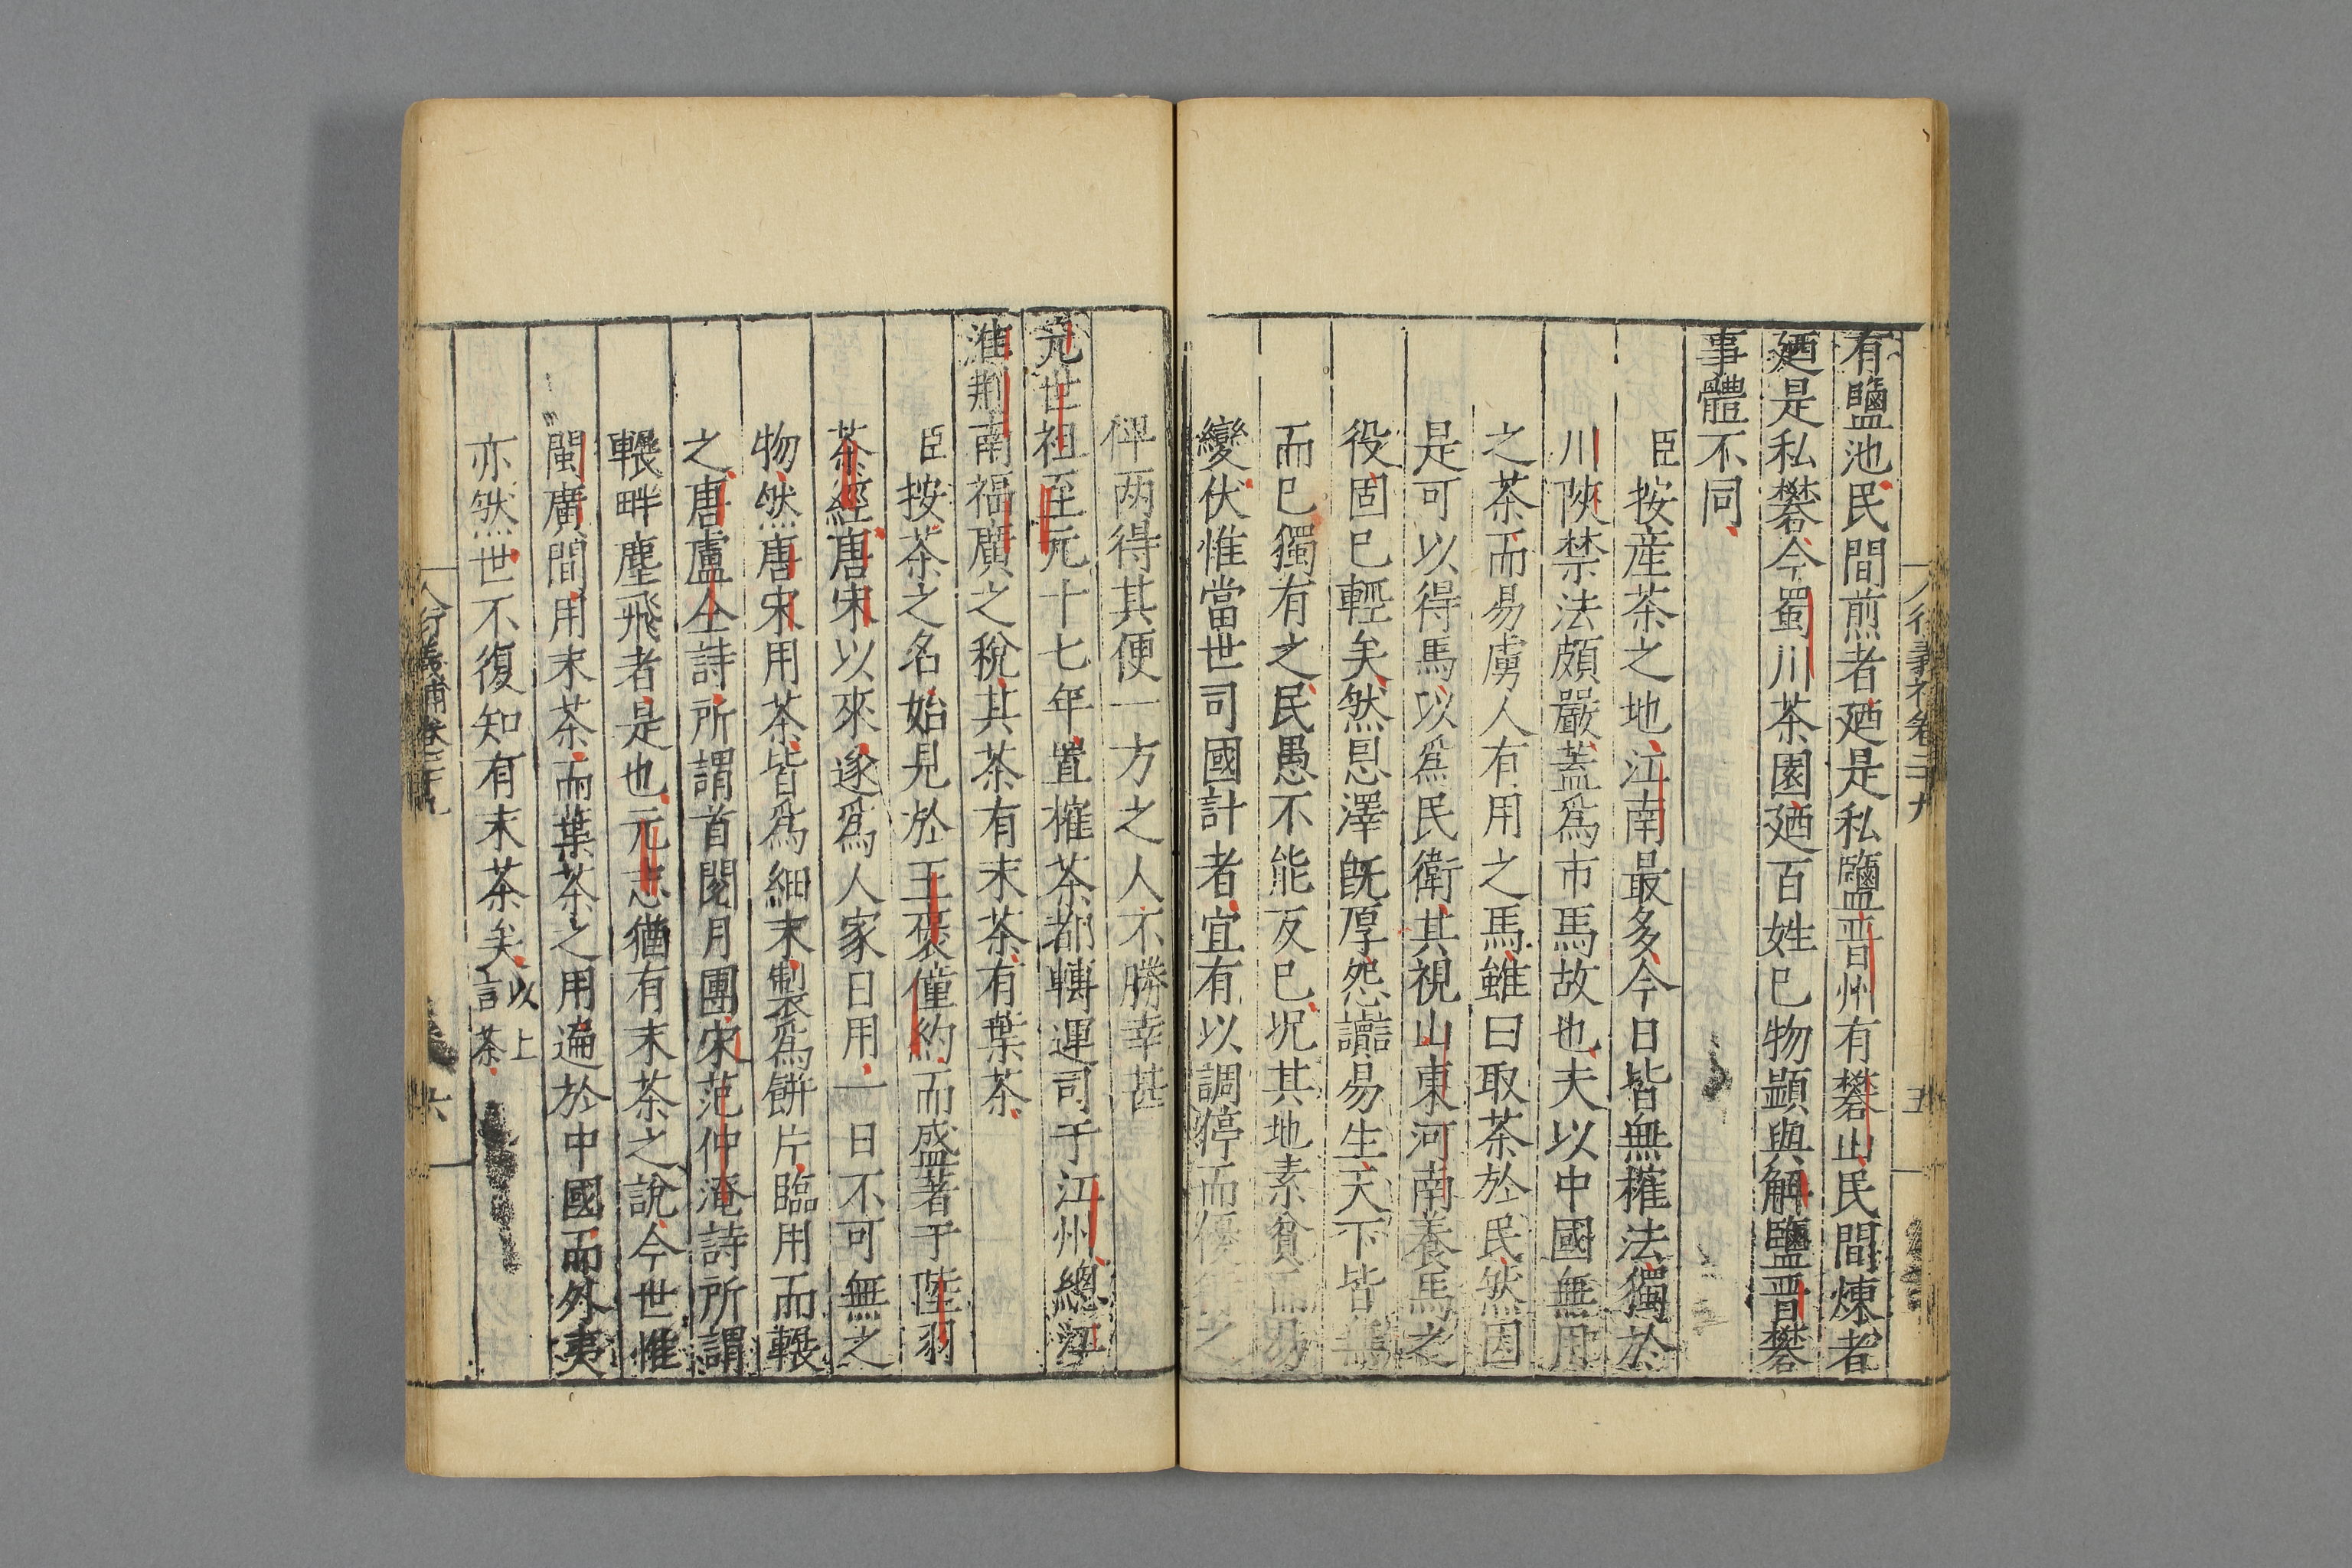 有鹽池民間煎者廼是私鹽晋州有礬山民間煉者
廼是私礬今蜀川茶園廼百姓巳物顯與解鹽晋礬
事體不同
臣按産茶之地江南最多今日皆無榷法獨於
川陜禁法頗嚴蓋爲市馬故也夫以中國無用
之茶而易虜人有用之馬雖曰取茶於民然因
是可以得馬以爲民衛其視山東河南養馬之
役固巳輕矣然恩澤既厚怨讟易生天下皆無
而巳獨有之民愚不能反巳况其地素貧而易
變伏惟當世司國計者宜有以調停而優之
俾两得其便一方之人不勝幸甚
元世祖至元十七年置榷茶都轉運司于江州總江
淮荆南福廣之税其茶有末茶有葉茶
臣按茶之名始見於王褒僮約而盛著于陸羽
茶經唐宋以來遂爲人家日用一日不可無之
物然唐宋用茶皆爲細末製爲餅片臨用而輾
之唐盧仝詩所謂首閱月團宋范仲淹詩所謂
輾畔塵飛者是也元志猶有末茶之說今世惟
閩廣間用末茶而葉茶之用遍於中國而外夷
亦然世不復知有末茶矣以上言茶
六